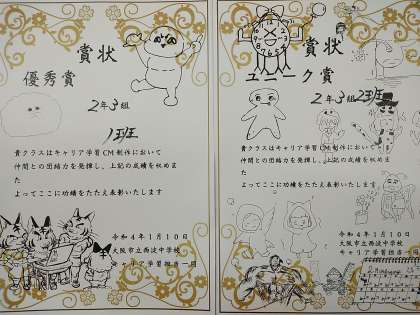 賞状
優秀賞
2年3組
1班
貴クラスはキャリア学習CM制作において
仲間との団結力を発揮し、上記の成績を収めま
た
よってここに功績をたたえ表彰いたします
令和4年1月10日
大阪市立西淀中学校
キャリア学習担当一同
賞状
ユニーク賞
2年3組2班
貴クラスはキャリア学習CM制作において
仲間との団結力を発揮し、上記の成績を収めま
た
よってここに功績をたたえ表彰いたします
令和4年1月10日
大阪市立西淀中学校
キャリア学習担当一同